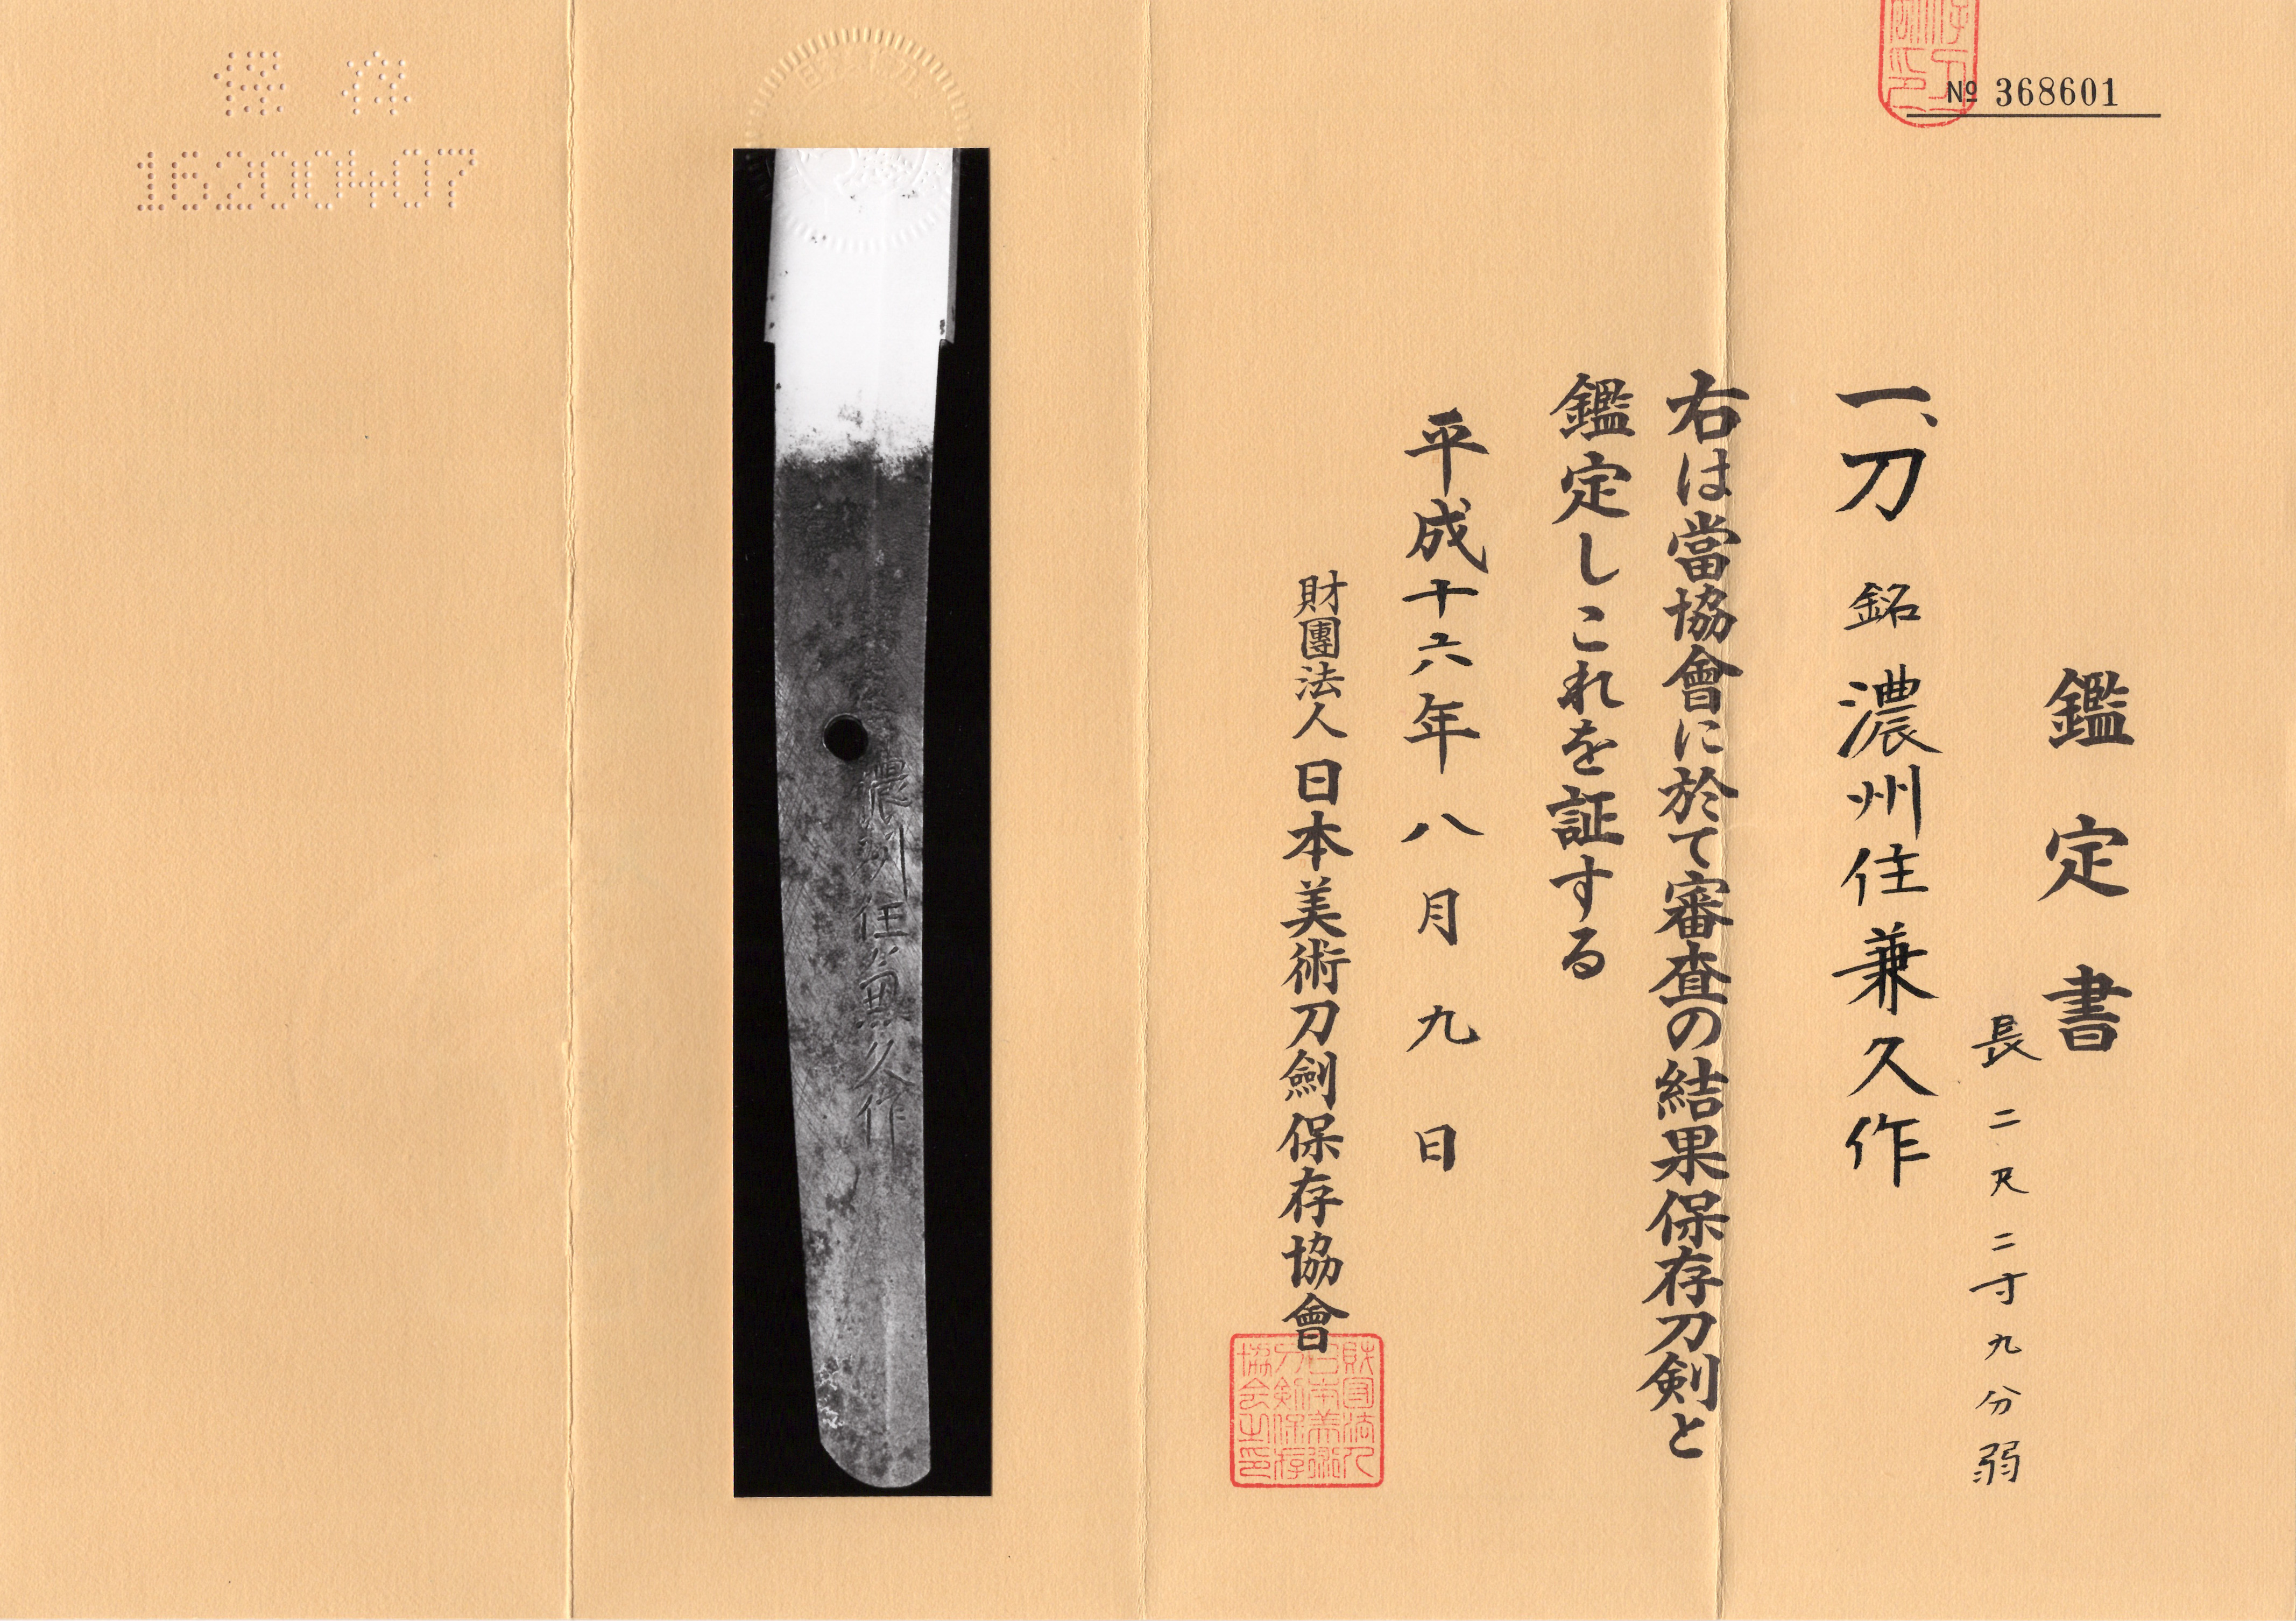 № 368601
鑑定書
長二尺二寸九分弱
一、刀 銘 濃州住兼久作
右は當協會に於て審査の結果保存刀剣と
鑑定しこれを証する
平成十六年八月九日
財團法人 日本美術刀劍保存協會
濃州住兼久作
保存
16200407